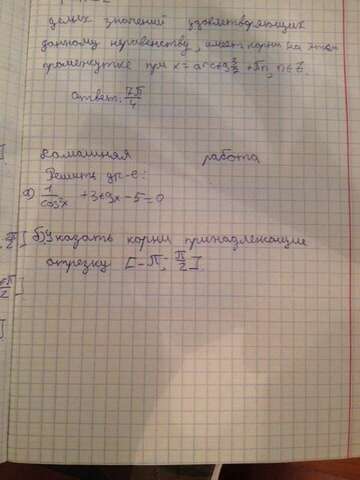 целых значений удовлетворяющих
данному неравенству, имеет корни на этом
промежутке при x = arctg 3/2 + πn, n∈Z.
Ответ: 7π/4
Домашняя работа
Решить ур-е:
а) 1/cos²x + 3tgx - 5 = 0
б) Указать корни принадлежащие
отрезку [-π; π/2].